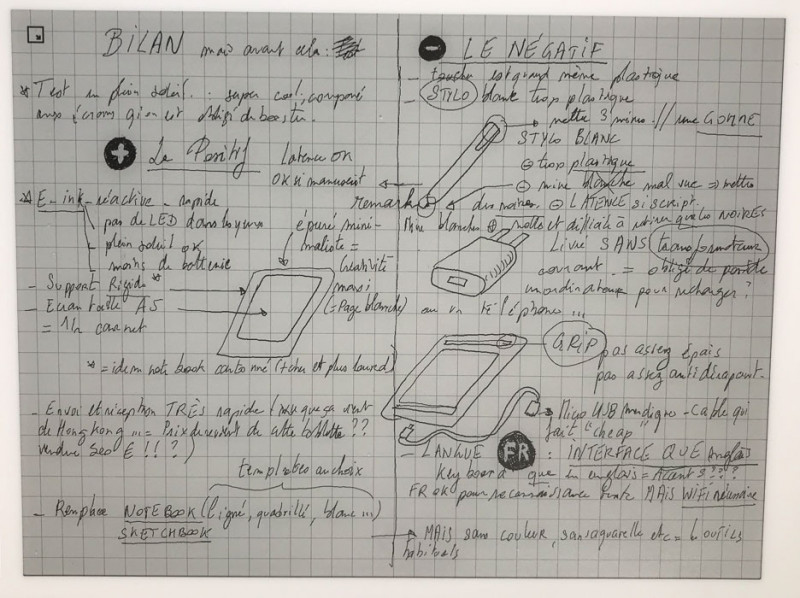 BILAN mais avant cela :
* Test en plein soleil . . super cool, comparé
aux écrans qu'on est obligé de booster.
+ Le Positif
Latence OK
OK si manuscrit
* E-ink - réactive - rapide
pas de LED dans les yeux
- plein soleil OK
- moins de batterie
épuré mini-
maliste =
créativité
maxi
(= Page blanche)
- Support Rigide *
- Ecran taille A5
= 1/2 carnet
* = idem note book cartonné (+ cher et plus lourd)
- Envoi et réception TRÈS rapide (vu que ça vient
de Hong Kong ... = Prix de revient de cette tablette ??
vendue 300 € !! ? )
templates au choix
- Remplace NOTEBOOK (ligné, quadrillé, blanc ...)
SKETCHBOOK
- LE NÉGATIF
- toucher est quand même plastique
- STYLO blanc trop plastique
mettre 3 mines // une GOMME
STYLO BLANC
⊖ trop plastique
⊖ mine blanche mal vue => mettre
remarks des noires. ⊖ LATENCE si script.
Mine blanche ⊕ nette et difficile à retirer que les NOIRES
Livré SANS transformateur
courant. = obligé de
un ordinateur pour recharger ?
ou un téléphone ...
GRIP pas assez épais
pas assez antidérapant.
Micro USB - cable qui
fait "cheap"
- LANGUE FR : INTERFACE QUE Anglais
Keyboard que en anglais = Accents ???
FR OK pour reconnaissance texte MAIS WIFI nécessaire
MAIS sans couleur, sans aquarelle etc = outils
habituels